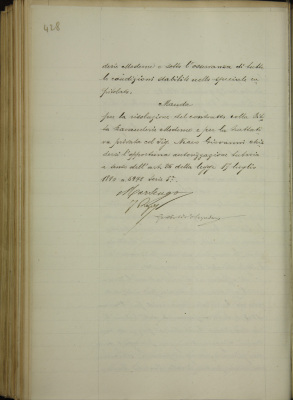 428
deria Moderni e sotto l'osservanza di tutte
le condizioni stabilite nello speciale ca
pitolato.
Manda
per la risoluzione del contratto colla Dit
ta Lavanderia Moderni e per la trattati
va privata col Sig. Giovanni chie
dersi l'opportuna autorizzazione tutoria
a senso dell'art. 26 della legge 17 luglio
1890 n. 6972 serie 3ª.